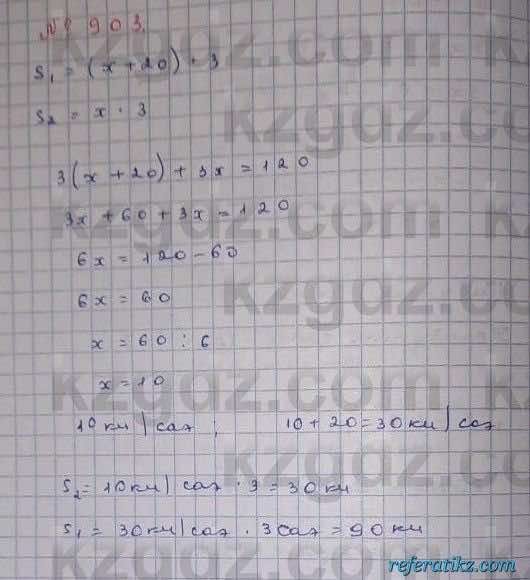 № 903.
S₁ = (x + 20) · 3
S₂ = x · 3
3(x + 20) + 3x = 120
3x + 60 + 3x = 120
6x = 120 - 60
6x = 60
x = 60 : 6
x = 10
10 км | сағ ; 10 + 20 = 30 км | сағ
S₂ = 10 км | сағ · 3 = 30 км
S₁ = 30 км | сағ · 3 сағ = 90 км
kzgdz.com
referatikz.com